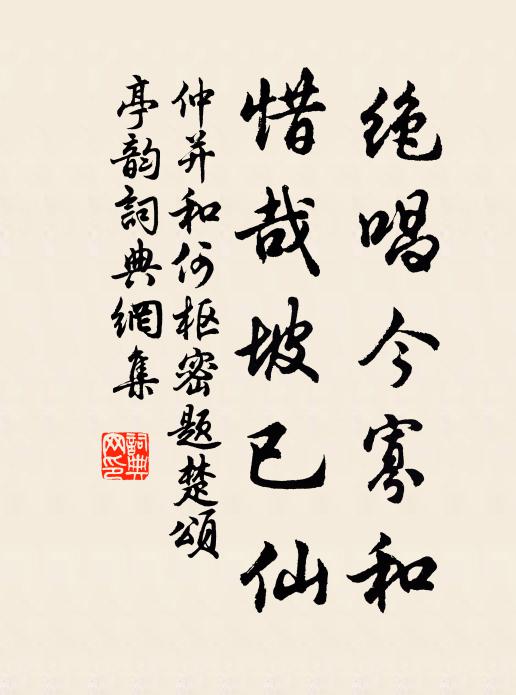 绝唱今寡和
惜哉坡已仙
仲并和何枢密题楚颂
亭韵詞典網集
詞典
网印